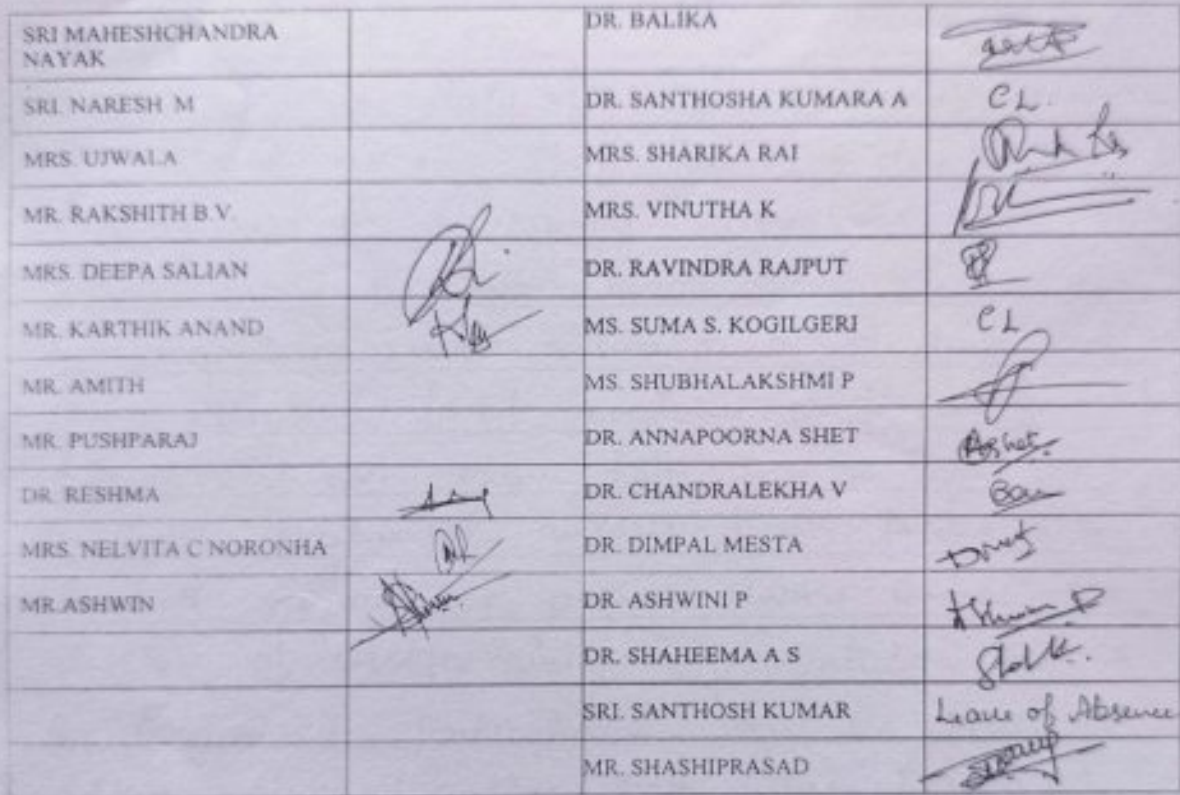 SRI MAHESHCHANDRA
NAYAK
DR. BALIKA
SRI. NARESH M
DR. SANTHOSHA KUMARA A
CL.
MRS. UJWALA
MRS. SHARIKA RAI
MR. RAKSHITH B.V.
MRS. VINUTHA K
MRS. DEEPA SALIAN
DR. RAVINDRA RAJPUT
MR. KARTHIK ANAND
MS. SUMA S. KOGILGERI
CL
MR. AMITH
MS. SHUBHALAKSHMI P
MR. PUSHPARAJ
DR. ANNAPOORNA SHET
Ashet
DR. RESHMA
DR. CHANDRALEKHA V
MRS. NELVITA C NORONHA
DR. DIMPAL MESTA
MR.ASHWIN
DR. ASHWINI P
DR. SHAHEEMA A S
SRI. SANTHOSH KUMAR
Leave of Absence
MR. SHASHIPRASAD